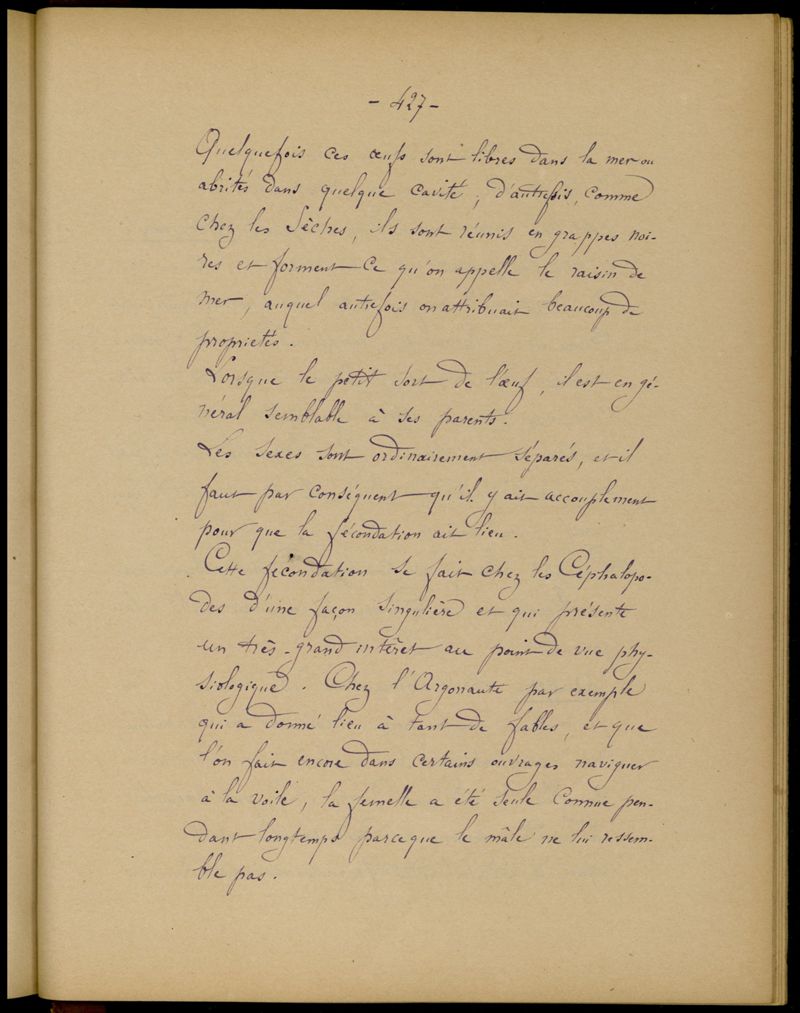 - 427 -
Quelquefois ces œufs sont libres dans la mer ou
abrités dans quelque cavité ; d'autrefois, comme
chez les Sèches, ils sont réunis en grappes noi-
res et forment ce qu'on appelle le raisin de
mer, auquel autrefois on attribuait beaucoup de
proprietés.
Lorsque le petit sort de l'œuf, il est en gé-
néral semblable à ses parents.
Les sexes sont ordinairement séparés, et il
faut par conséquent qu'il y ait accouplement
pour que la fécondation ait lieu.
Cette fécondation se fait chez les Céphalopo-
des d'une façon singulière et qui présente
un très-grand intérêt au point de vue phy-
siologique. Chez l'Argonaute par exemple
qui a donné lieu à tant de fables, et que
l'on fait encore dans certains ouvrages naviguer
à la voile, la femelle a été seule connue pen-
dant longtemps parceque le mâle ne lui ressem-
ble pas.